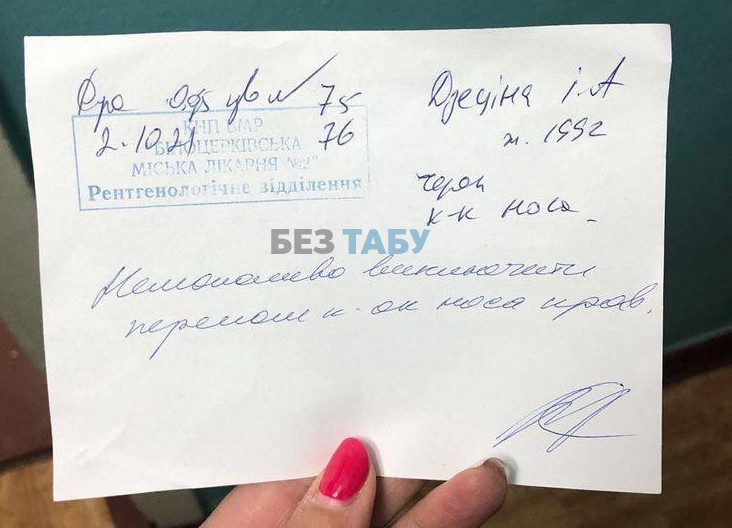 75
2.10.21 76
КНП БМР
БІЛОЦЕРКІВСЬКА
МІСЬКА ЛІКАРНЯ №2"
Рентгенологічне відділення
І.А
ж. 1992
череп
к-к носа
БЕЗ ТАБУ
Неможливо виключити
перелом к-ок носа прав.